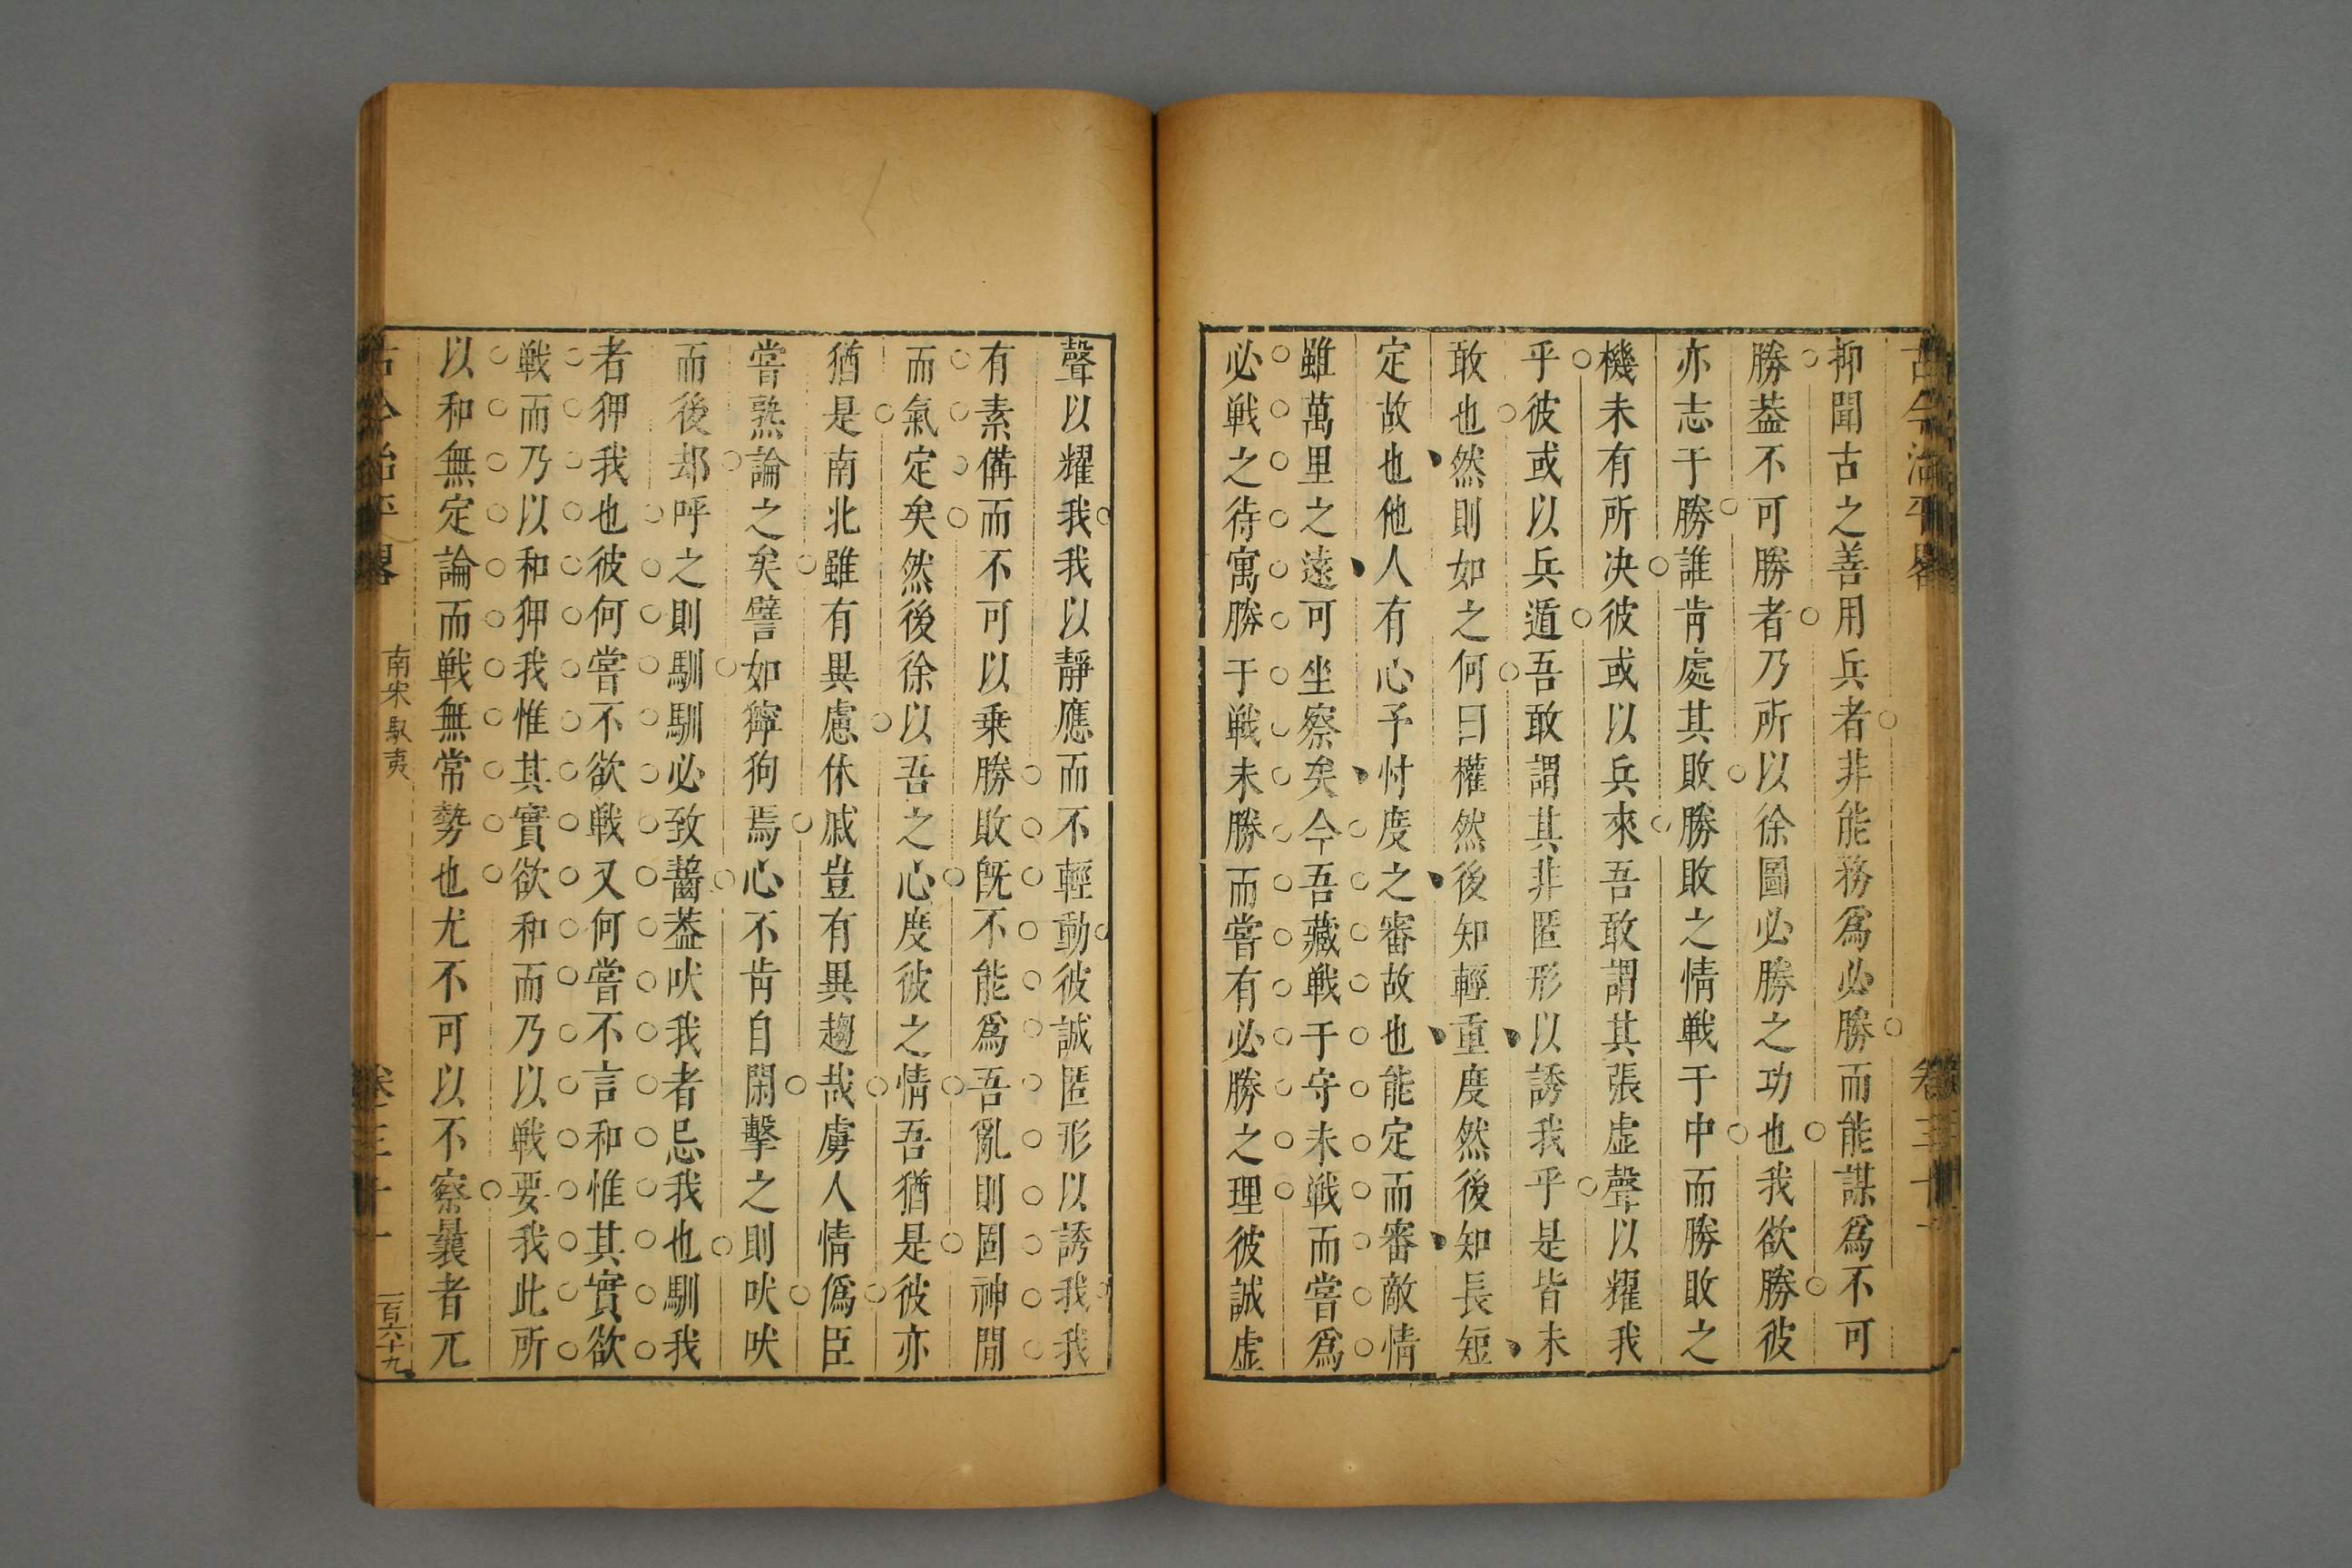 古今治平畧 卷三十一
抑聞古之善用兵者非能務爲必勝而能謀爲不可
勝葢不可勝者乃所以徐圖必勝之功也我欲勝彼
亦志于勝誰肯處其敗勝敗之情戦于中而勝敗之
機未有所决彼或以兵來吾敢謂其張虚聲以耀我
乎彼或以兵遁吾敢謂其非匿形以誘我乎是皆未
敢也然則如之何曰權然後知輕重度然後知長短
定故也他人有心予忖度之審故也能定而審敵情
雖萬里之遠可坐察矣今吾藏戦于守未戦而嘗爲
必戦之待寓勝于戦未勝而嘗有必勝之理彼誠虚
聲以耀我我以靜應而不輕動彼誠匿形以誘我我
有素備而不可以乗勝敗旣不能爲吾亂則固神閒
而氣定矣然後徐以吾之心度彼之情吾猶是彼亦
猶是南北雖有異慮休戚豈有異趨哉虜人情僞臣
嘗熟論之矣譬如獰狗焉心不肯自閑擊之則吠吠
而後却呼之則馴馴必致齧葢吠我者忌我也馴我
者狎我也彼何嘗不欲戦又何嘗不言和惟其實欲
戦而乃以和狎我惟其實欲和而乃以戦要我此所
以和無定論而戦無常勢也尤不可以不察曩者兀
古今治平畧 南宋馭夷 卷三十一 一百六十九